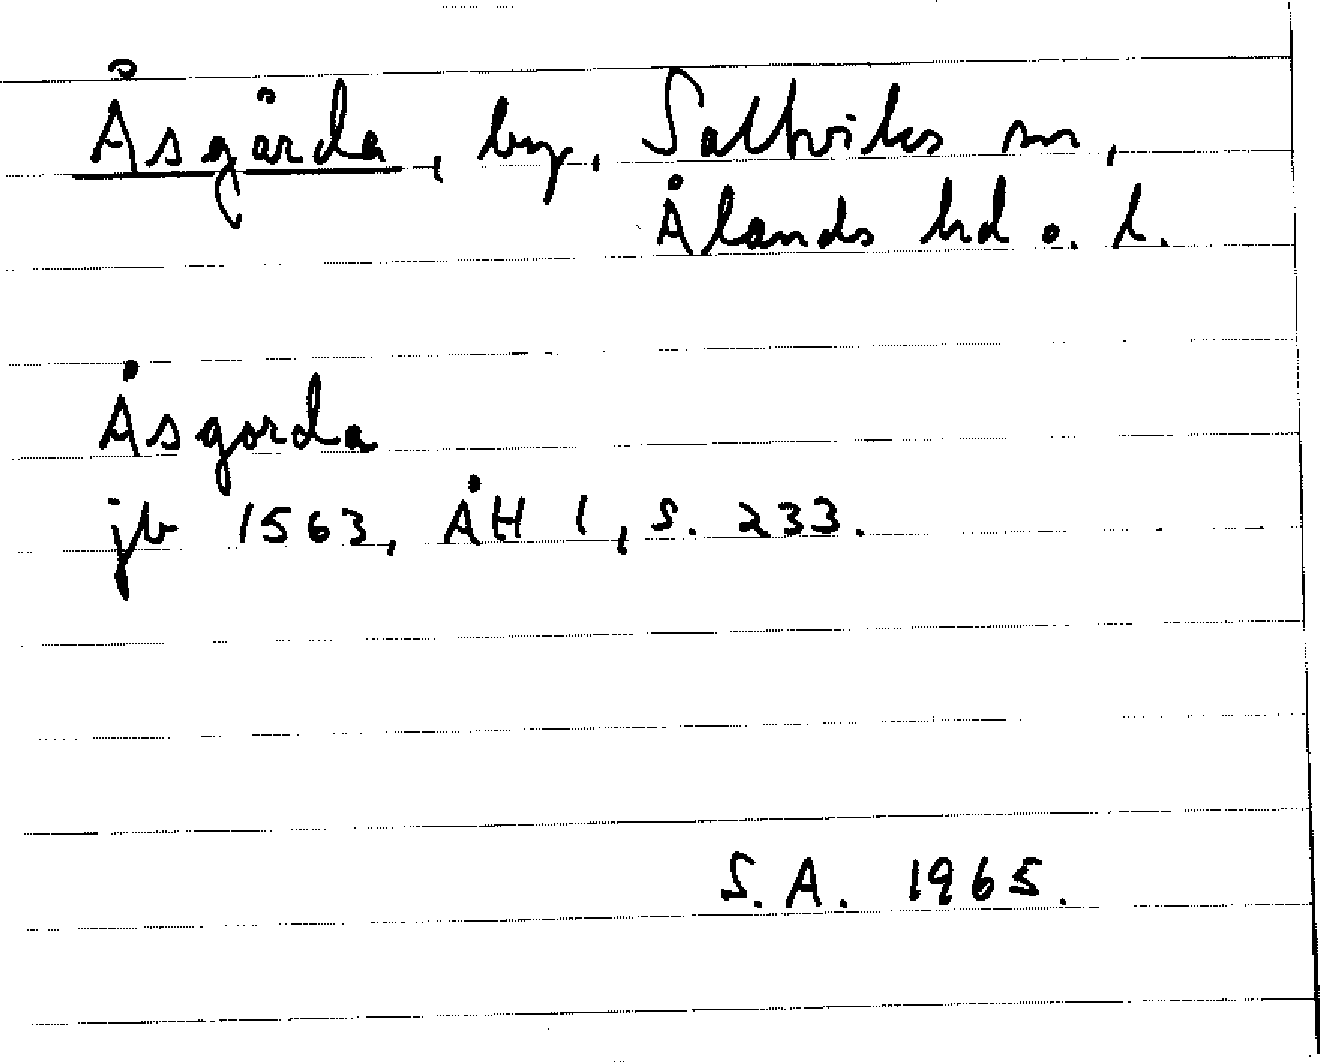 Åsgårda, by, Saltviks sn,
Ålands hd o. l.
Åsgorda
jb 1563, ÅH 1, s. 233.
S. A. 1965.